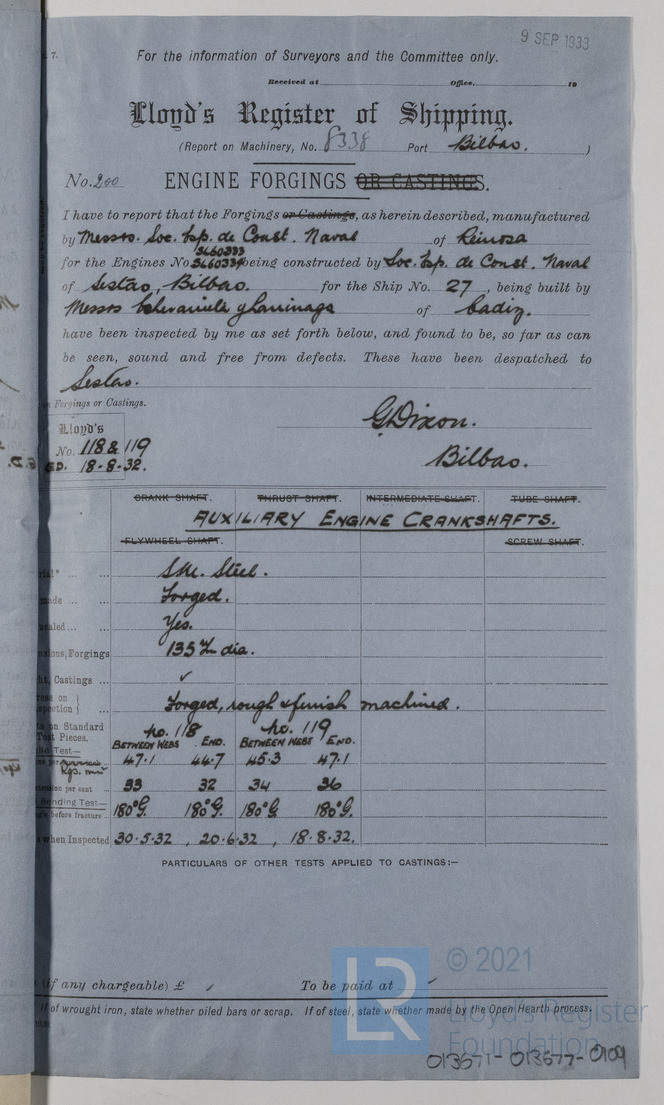 9 SEP 1933
7.
For the information of Surveyors and the Committee only.
Received at Office, 19
Lloyd's Register of Shipping.
(Report on Machinery, No. 8338 Port Bilbao.)
No. 200 ENGINE FORGINGS OR CASTINGS.
I have to report that the Forgings or Castings, as herein described, manufactured
by Messrs. Soc. Esp. de Const. Naval of Reinosa
3660333
for the Engines No 3660334 being constructed by Soc. Esp. de Const. Naval
of Sestao, Bilbao. for the Ship No. 27, being built by
Messrs Echevarrieta y Larrinaga of Cadiz.
have been inspected by me as set forth below, and found to be, so far as can
be seen, sound and free from defects. These have been despatched to
Sestao.
Forgings or Castings.
G. Dixon.
Lloyd's
No. 118 & 119
G.D. 18-8-32.
Bilbao.
CRANK SHAFT. THRUST SHAFT. INTERMEDIATE SHAFT. TUBE SHAFT.
AUXILIARY ENGINE CRANKSHAFTS.
FLYWHEEL SHAFT. SCREW SHAFT.
S.M. Steel.
made Forged.
Yes.
Forgings 135 m/m dia.
Castings ✓
Forged, rough & finish machined.
on Standard
Test Pieces. No. 118 No. 119
BETWEEN WEBS END. BETWEEN WEBS END.
Test—
47.1 44.7 45.3 47.1
Kgs. mm²
per cent 33 32 34 36
Bending Test—
before fracture 180°G. 180°G. 180°G. 180°G.
when Inspected 30-5-32, 20-6-32, 18-8-32.
PARTICULARS OF OTHER TESTS APPLIED TO CASTINGS:—
(if any chargeable) £ ✓ To be paid at ✓
If of wrought iron, state whether piled bars or scrap. If of steel, state whether made by the Open Hearth process.
LR
© 2021
Lloyd's Register
Foundation
013571-013577-0109